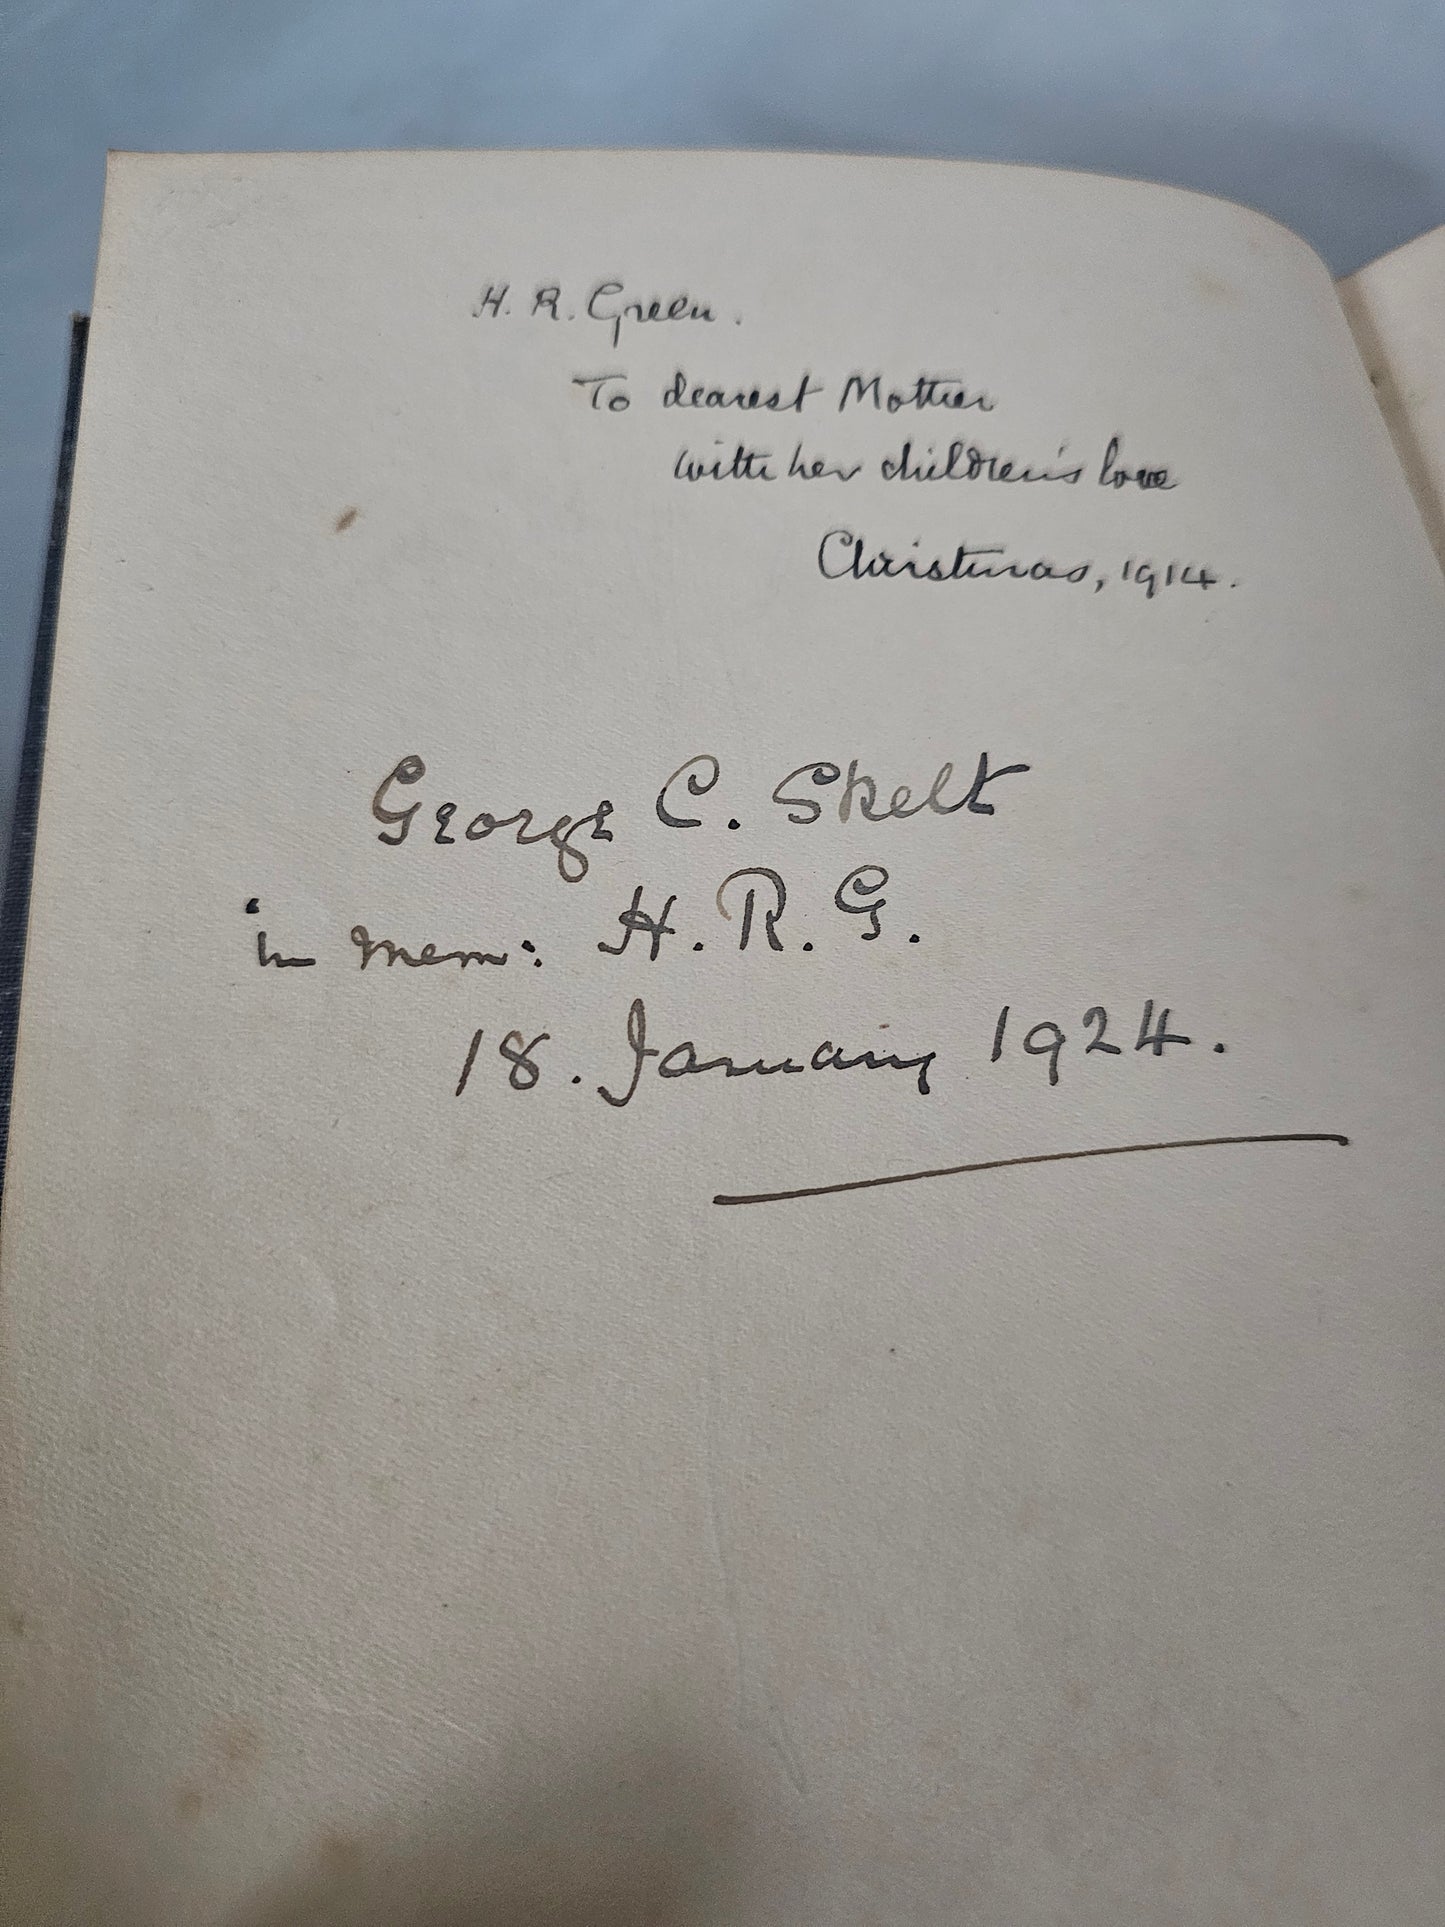 H. R. Green.
To dearest Mother
with her children's love
Christmas, 1914.
George C. Skelt
in Mem: H. R. G.
18. January 1924.